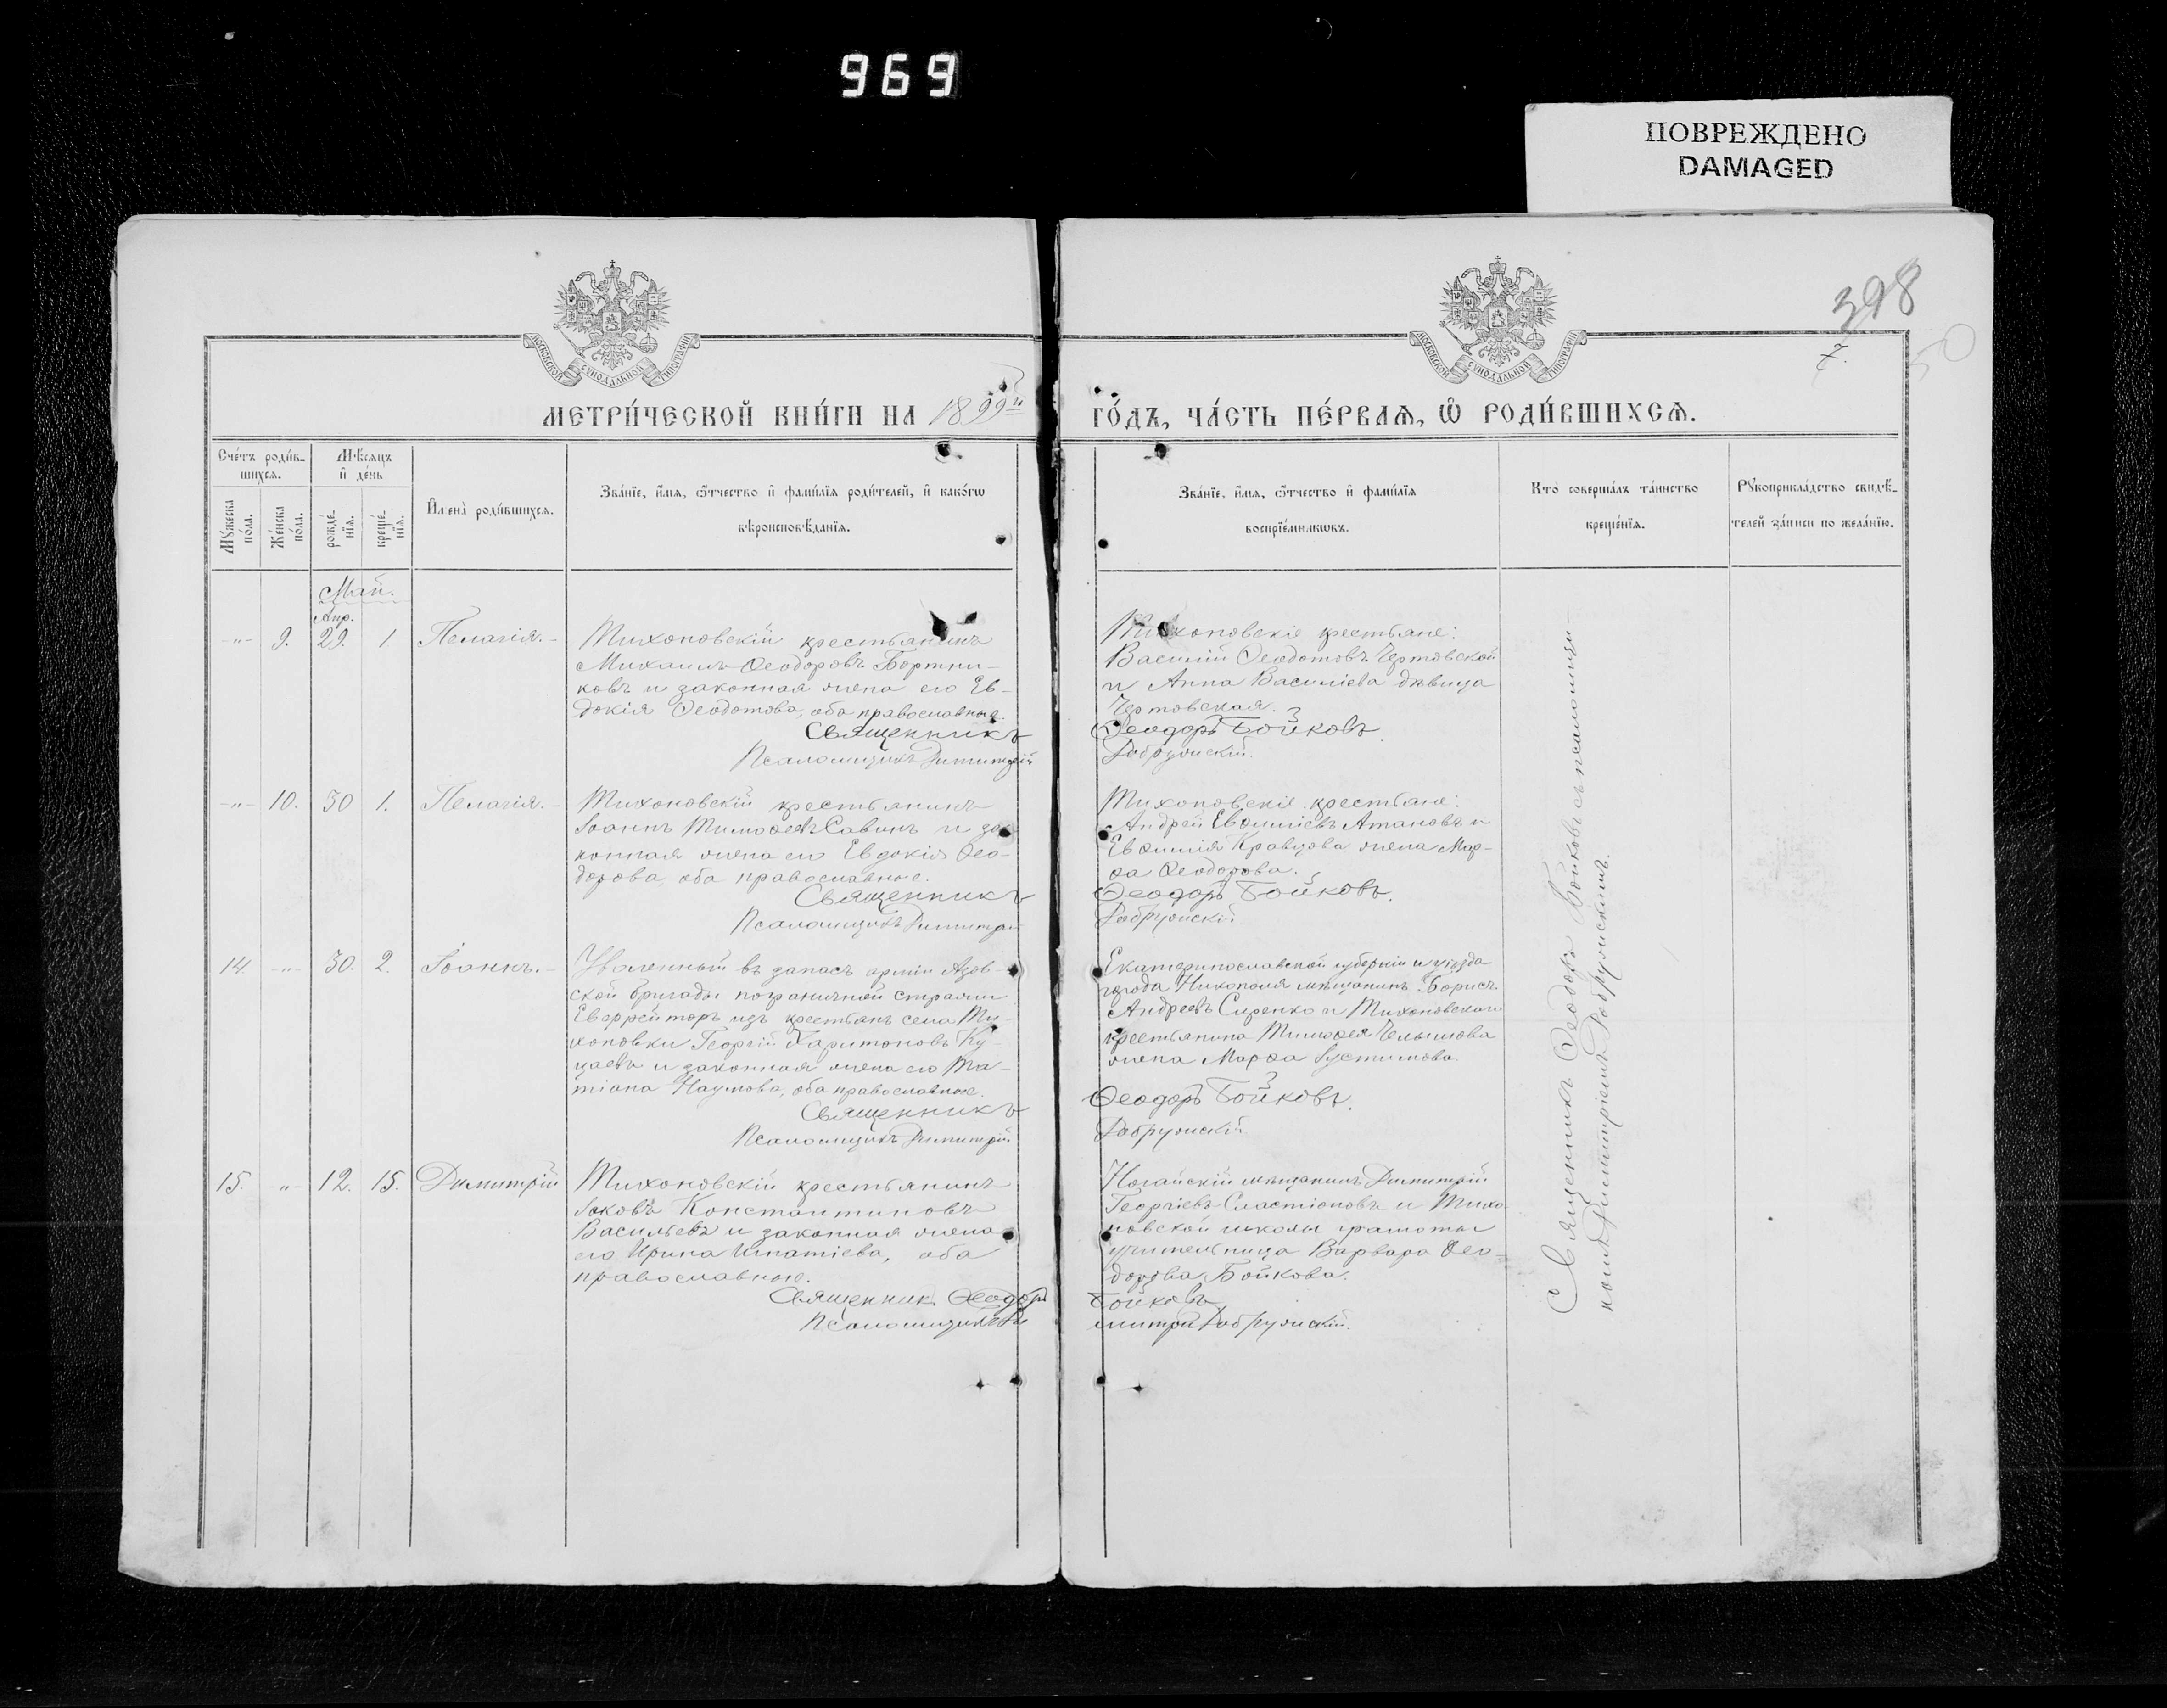 969
ПОВРЕЖДЕНО
DAMAGED
398
7.
50
МОСКОВСКОЙ СѴНОДАЛЬНОЙ ТИПОГРАФІИ
МОСКОВСКОЙ СѴНОДАЛЬНОЙ ТИПОГРАФІИ
МЕТРИ́ЧЕСКОЙ КНИ́ГИ НА 1899й
ГО́ДЪ, ЧА́СТЬ ПЕ́РВАѦ, Ѡ҆ РОДИ́ВШИХСѦ.
Сче́тъ роди́в-
шихсѧ.
Мꙋжеска
по́ла.
Же́нска
по́ла.
Мѣ́сѧцъ
и҆ де́нь
рожде́-
нїѧ.
креще́-
нїѧ.
И҆мена̀ роди́вшихсѧ.
Зва́нїе, и҆́мѧ, ѻ҆́тчество и҆ фами́лїѧ роди́телей, и҆ како́гѡ
вѣроисповѣ́данїѧ.
Зва́нїе, и҆́мѧ, ѻ҆́тчество и҆ фами́лїѧ
воспрїе́мникѡвъ.
Кто̀ соверша́лъ та́инство
креще́нїѧ.
Рꙋкоприкла́дство свидѣ́-
телей за́писи по жела́нїю.
Май.
Апр.
-"- 9. 29. 1 Пелагія.-
Тихоновскій крестьянинъ
Михаилъ Ѳеодоровъ Бортни-
ковъ и законная жена его Ев-
докія Ѳеодотова, оба православные.
Священникъ
Псаломщикъ Димитрій
Тихоновскіе крестьяне:
Василій Ѳеодотовъ Чертовской
и Анна Василіева дѣвица
Чертовская.
Ѳеодоръ Бойковъ
Добружскій.
-"- 10. 30 1. Пелагія.-
Тихоновскій крестьянинъ
Іоаннъ Тимоѳеевъ Савинъ и за-
конная жена его Евдокія Ѳео-
дорова, оба православные.
Священникъ
Псаломщикъ Димитрій
Тихоновскіе крестьяне:
Андрей Евѳиміевъ Атановъ и
Евѳимія Кравцова жена Мар-
ѳа Ѳеодорова.
Ѳеодоръ Бойковъ.
Добружскій
14 -"- 30. 2. Іоаннъ.-
Уволенный въ запасъ арміи Азов-
ской бригады пограничной стражи
Ефрейторъ изъ крестьянъ села Ти-
хоновки Георгій Харитоновъ Ку-
цаевъ и законная жена его Та-
тіана Наумова, оба православные.
Священникъ
Псаломщикъ Димитрій
Екатеринославской губерніи и уѣзда
города Никополя мѣщанинъ Борисъ
Андреевъ Сиренко и Тихоновскаго
крестьянина Тимоѳея Челышова
жена Марѳа Іустинова.
Ѳеодоръ Бойковъ.
Добружскій
15. -"- 12. 15. Димитрій
Тихоновскій крестьянинъ
Іаковъ Константиновъ
Васильевъ и законная жена
его Ирина Игнатіева, оба
православные.
Священникъ Ѳеодоръ
Псаломщикъ Ди
Ногайскій мѣщанинъ Димитрій
Георгіевъ Сластіоновъ и Тихо-
новской школы грамоты
учительница Варвара Ѳео-
дорова Бойкова.
Бойковъ
митрій Добружскій.
Священникъ Ѳеодоръ Бойковъ съ псаломщи-
комъ Димитріемъ Добружскимъ.